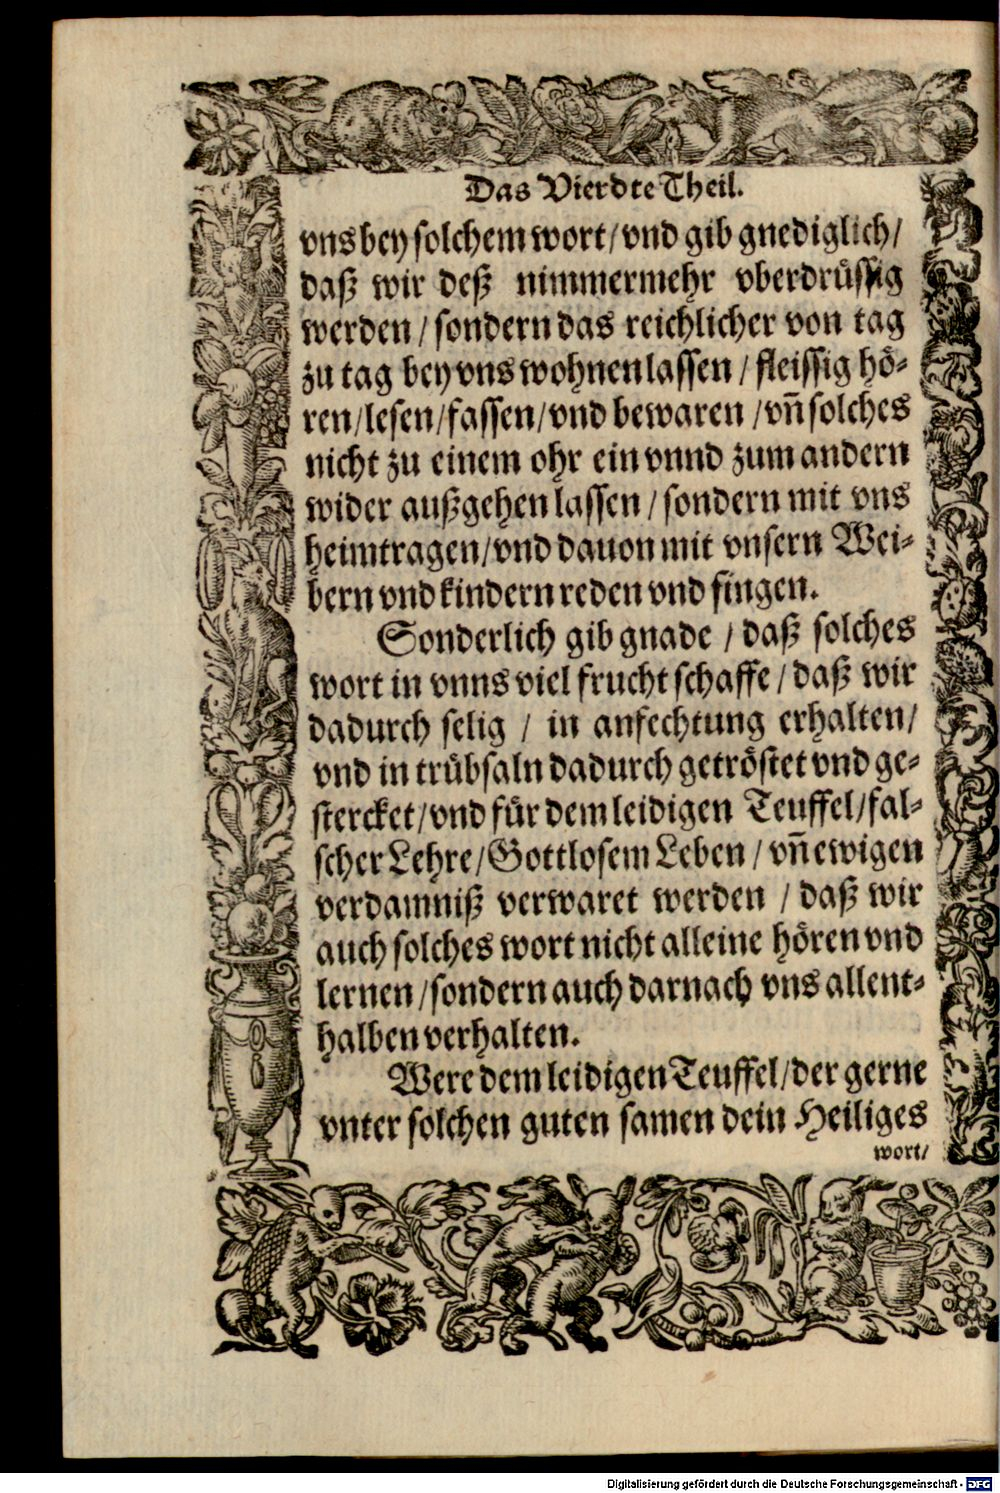 Das Vierdte Theil.
vns bey solchem wort/ vnd gib gnediglich/
daß wir deß nimmermehr vberdrüssig
werden/ sondern das reichlicher von tag
zu tag bey vns wohnen lassen/ fleissig hö-
ren/lesen/fassen/vnd bewaren/vñ solches
nicht zu einem ohr ein vnnd zum andern
wider außgehen lassen/ sondern mit vns
heimtragen/vnd dauon mit vnsern Wei-
bern vnd kindern reden vnd singen.
Sonderlich gib gnade/ daß solches
wort in vnns viel frucht schaffe/ daß wir
dadurch selig/ in anfechtung erhalten/
vnd in trübsaln dadurch getröstet vnd ge-
stercket/vnd für dem leidigen Teuffel/fal-
scher Lehre/Gottlosem Leben/ vñ ewigen
verdamniß verwaret werden/ daß wir
auch solches wort nicht alleine hören vnd
lernen/sondern auch darnach vns allent-
halben verhalten.
Were dem leidigen Teuffel/der gerne
vnter solchen guten samen dein Heiliges
wort/
Digitalisierung gefördert durch die Deutsche Forschungsgemeinschaft - DFG